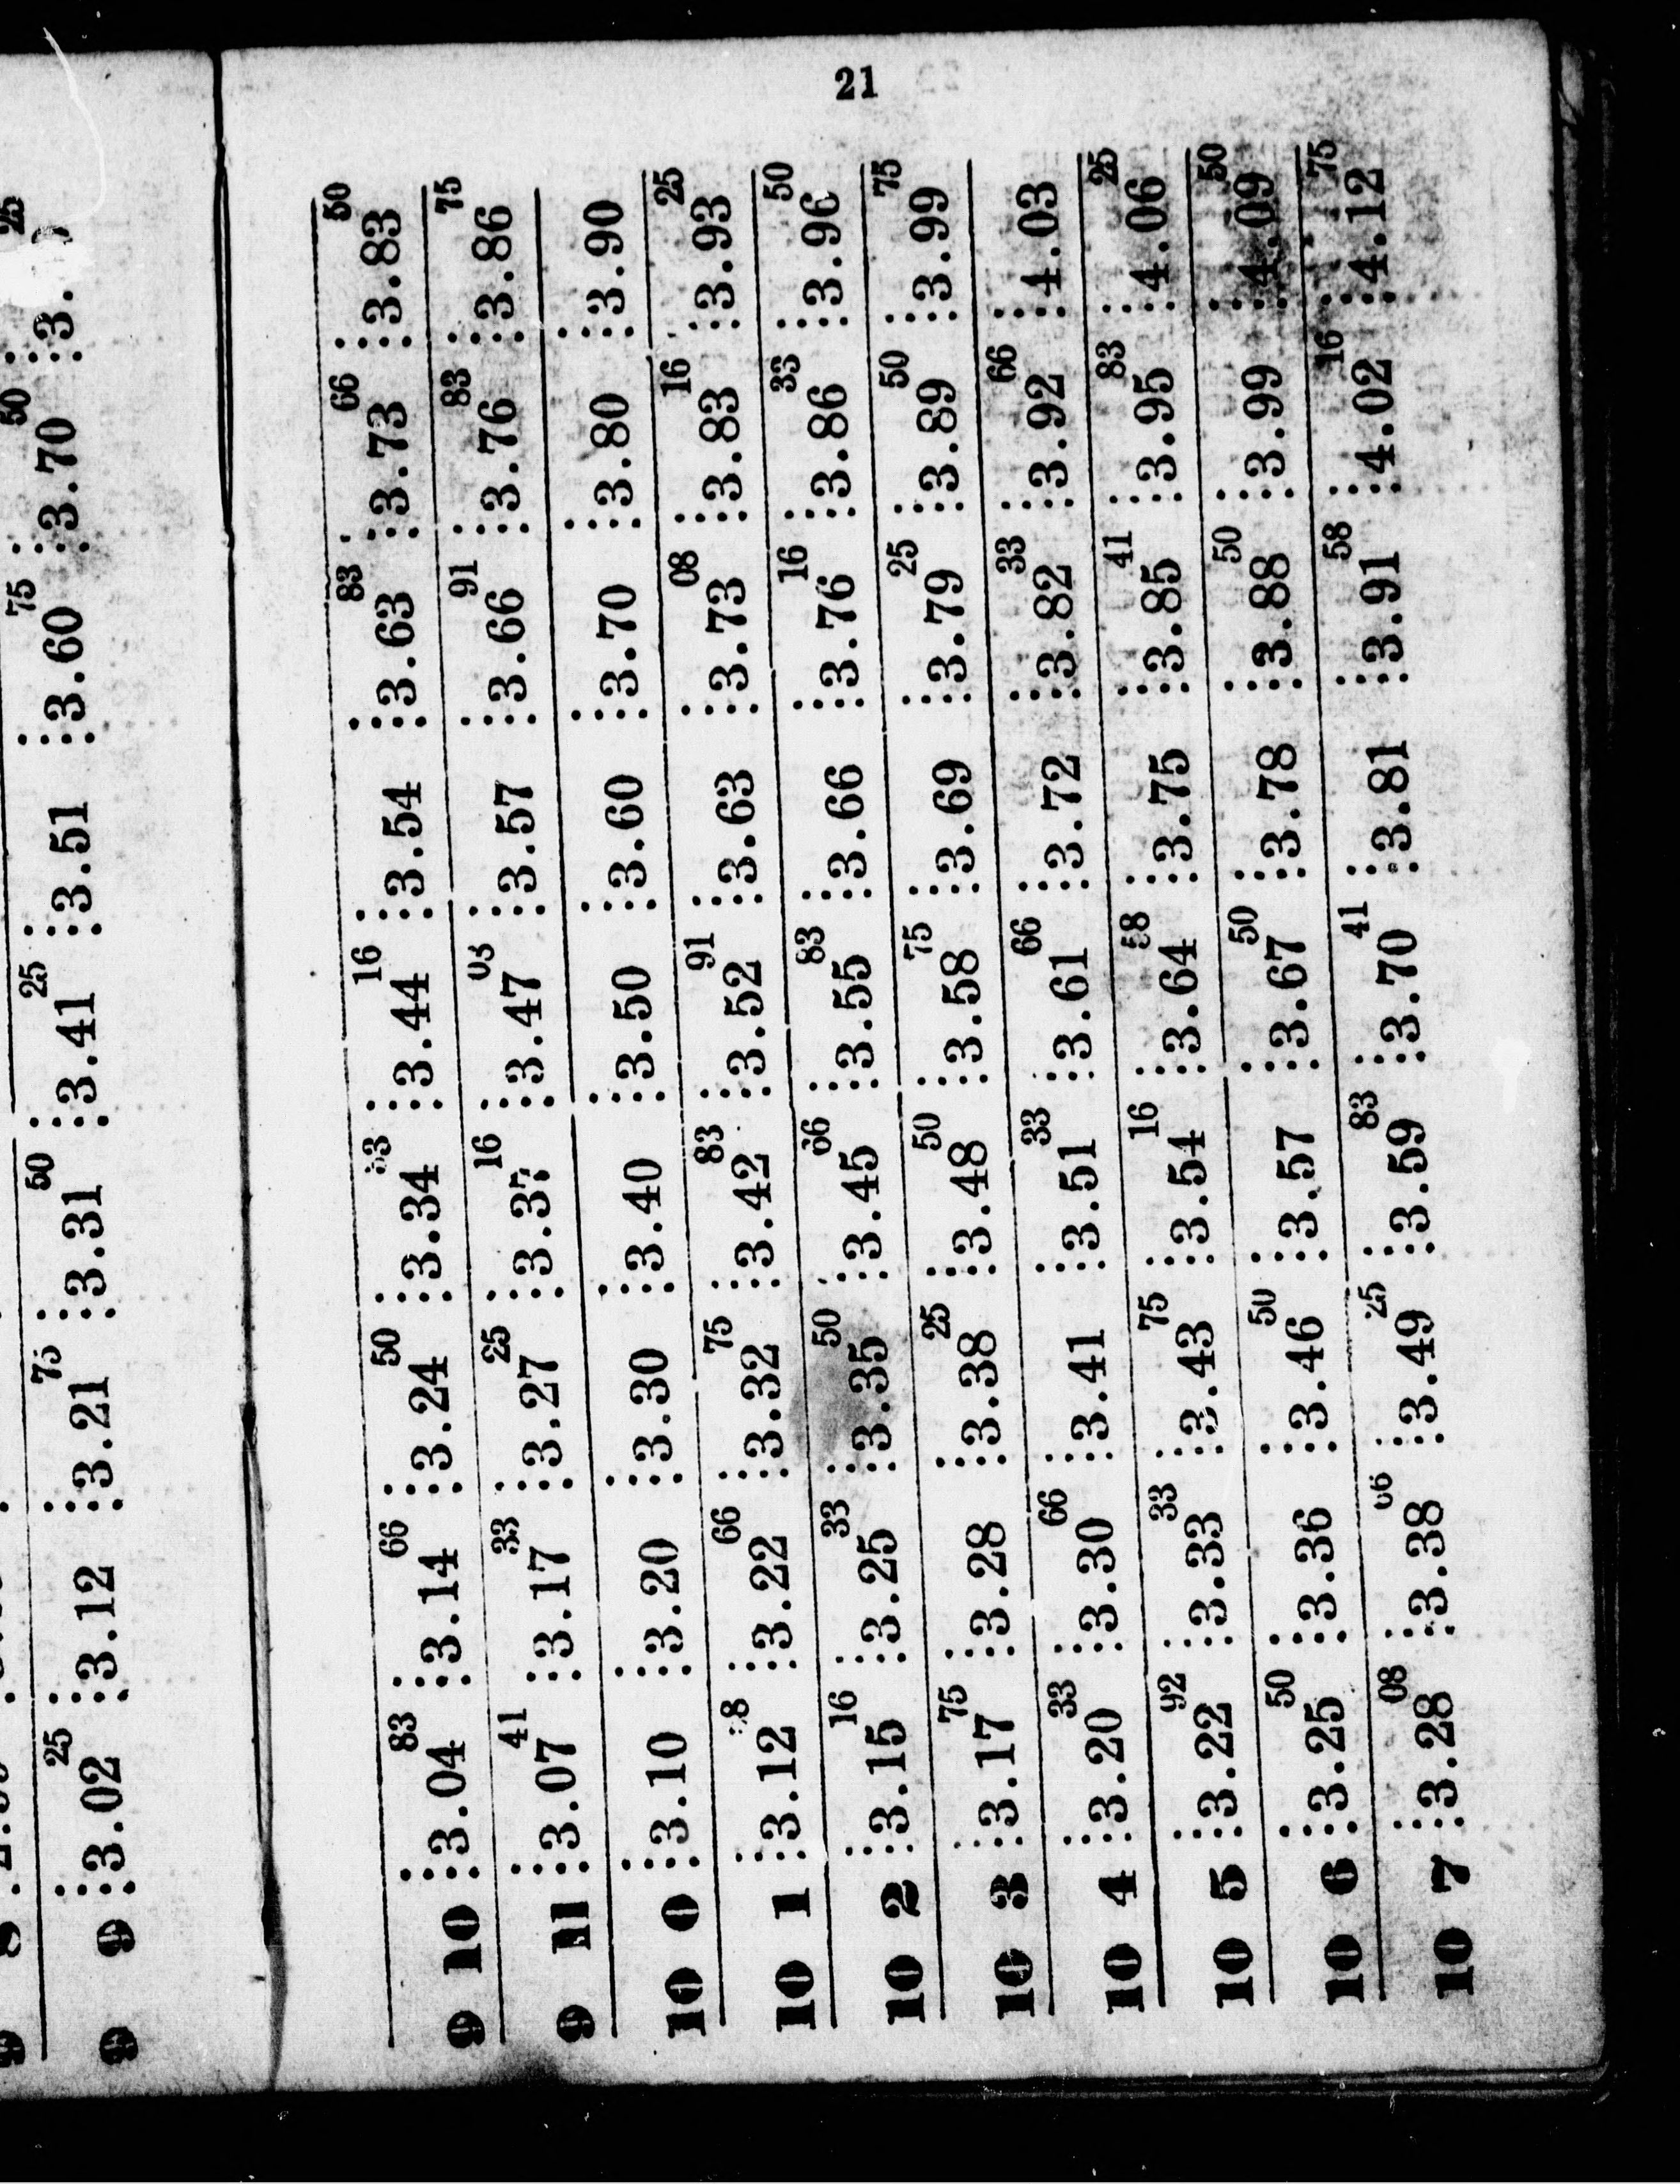 25 75 50 25 75 50 25
9 9 :3.02 :3.12 :3.21 :3.31 :3.41 :3.51 :3.60 :3.70 :3.
21
83 66 50 33 16 83 66 50
9 10 :3.04 :3.14 :3.24 :3.34 :3.44 :3.54 :3.63 :3.73 :3.83
41 33 25 16 08 91 83 75
9 11 :3.07 :3.17 :3.27 :3.37 :3.47 :3.57 :3.66 :3.76 :3.86
10 0 :3.10 :3.20 :3.30 :3.40 :3.50 :3.60 :3.70 :3.80 :3.90
58 66 75 83 91 08 16 25
10 1 :3.12 :3.22 :3.32 :3.42 :3.52 :3.63 :3.73 :3.83 :3.93
16 33 50 66 83 16 33 50
10 2 :3.15 :3.25 :3.35 :3.45 :3.55 :3.66 :3.76 :3.86 :3.96
75 25 50 75 25 50 75
10 3 :3.17 :3.28 :3.38 :3.48 :3.58 :3.69 :3.79 :3.89 :3.99
33 66 33 66 33 66
10 4 :3.20 :3.30 :3.41 :3.51 :3.61 :3.72 :3.82 :3.92 :4.03
92 33 75 16 58 41 83 25
10 5 :3.22 :3.33 :3.43 :3.54 :3.64 :3.75 :3.85 :3.95 :4.06
50 50 50 50 50
10 6 :3.25 :3.36 :3.46 :3.57 :3.67 :3.78 :3.88 :3.99 :4.09
08 66 25 83 41 58 16 75
10 7 :3.28 :3.38 :3.49 :3.59 :3.70 :3.81 :3.91 :4.02 :4.12